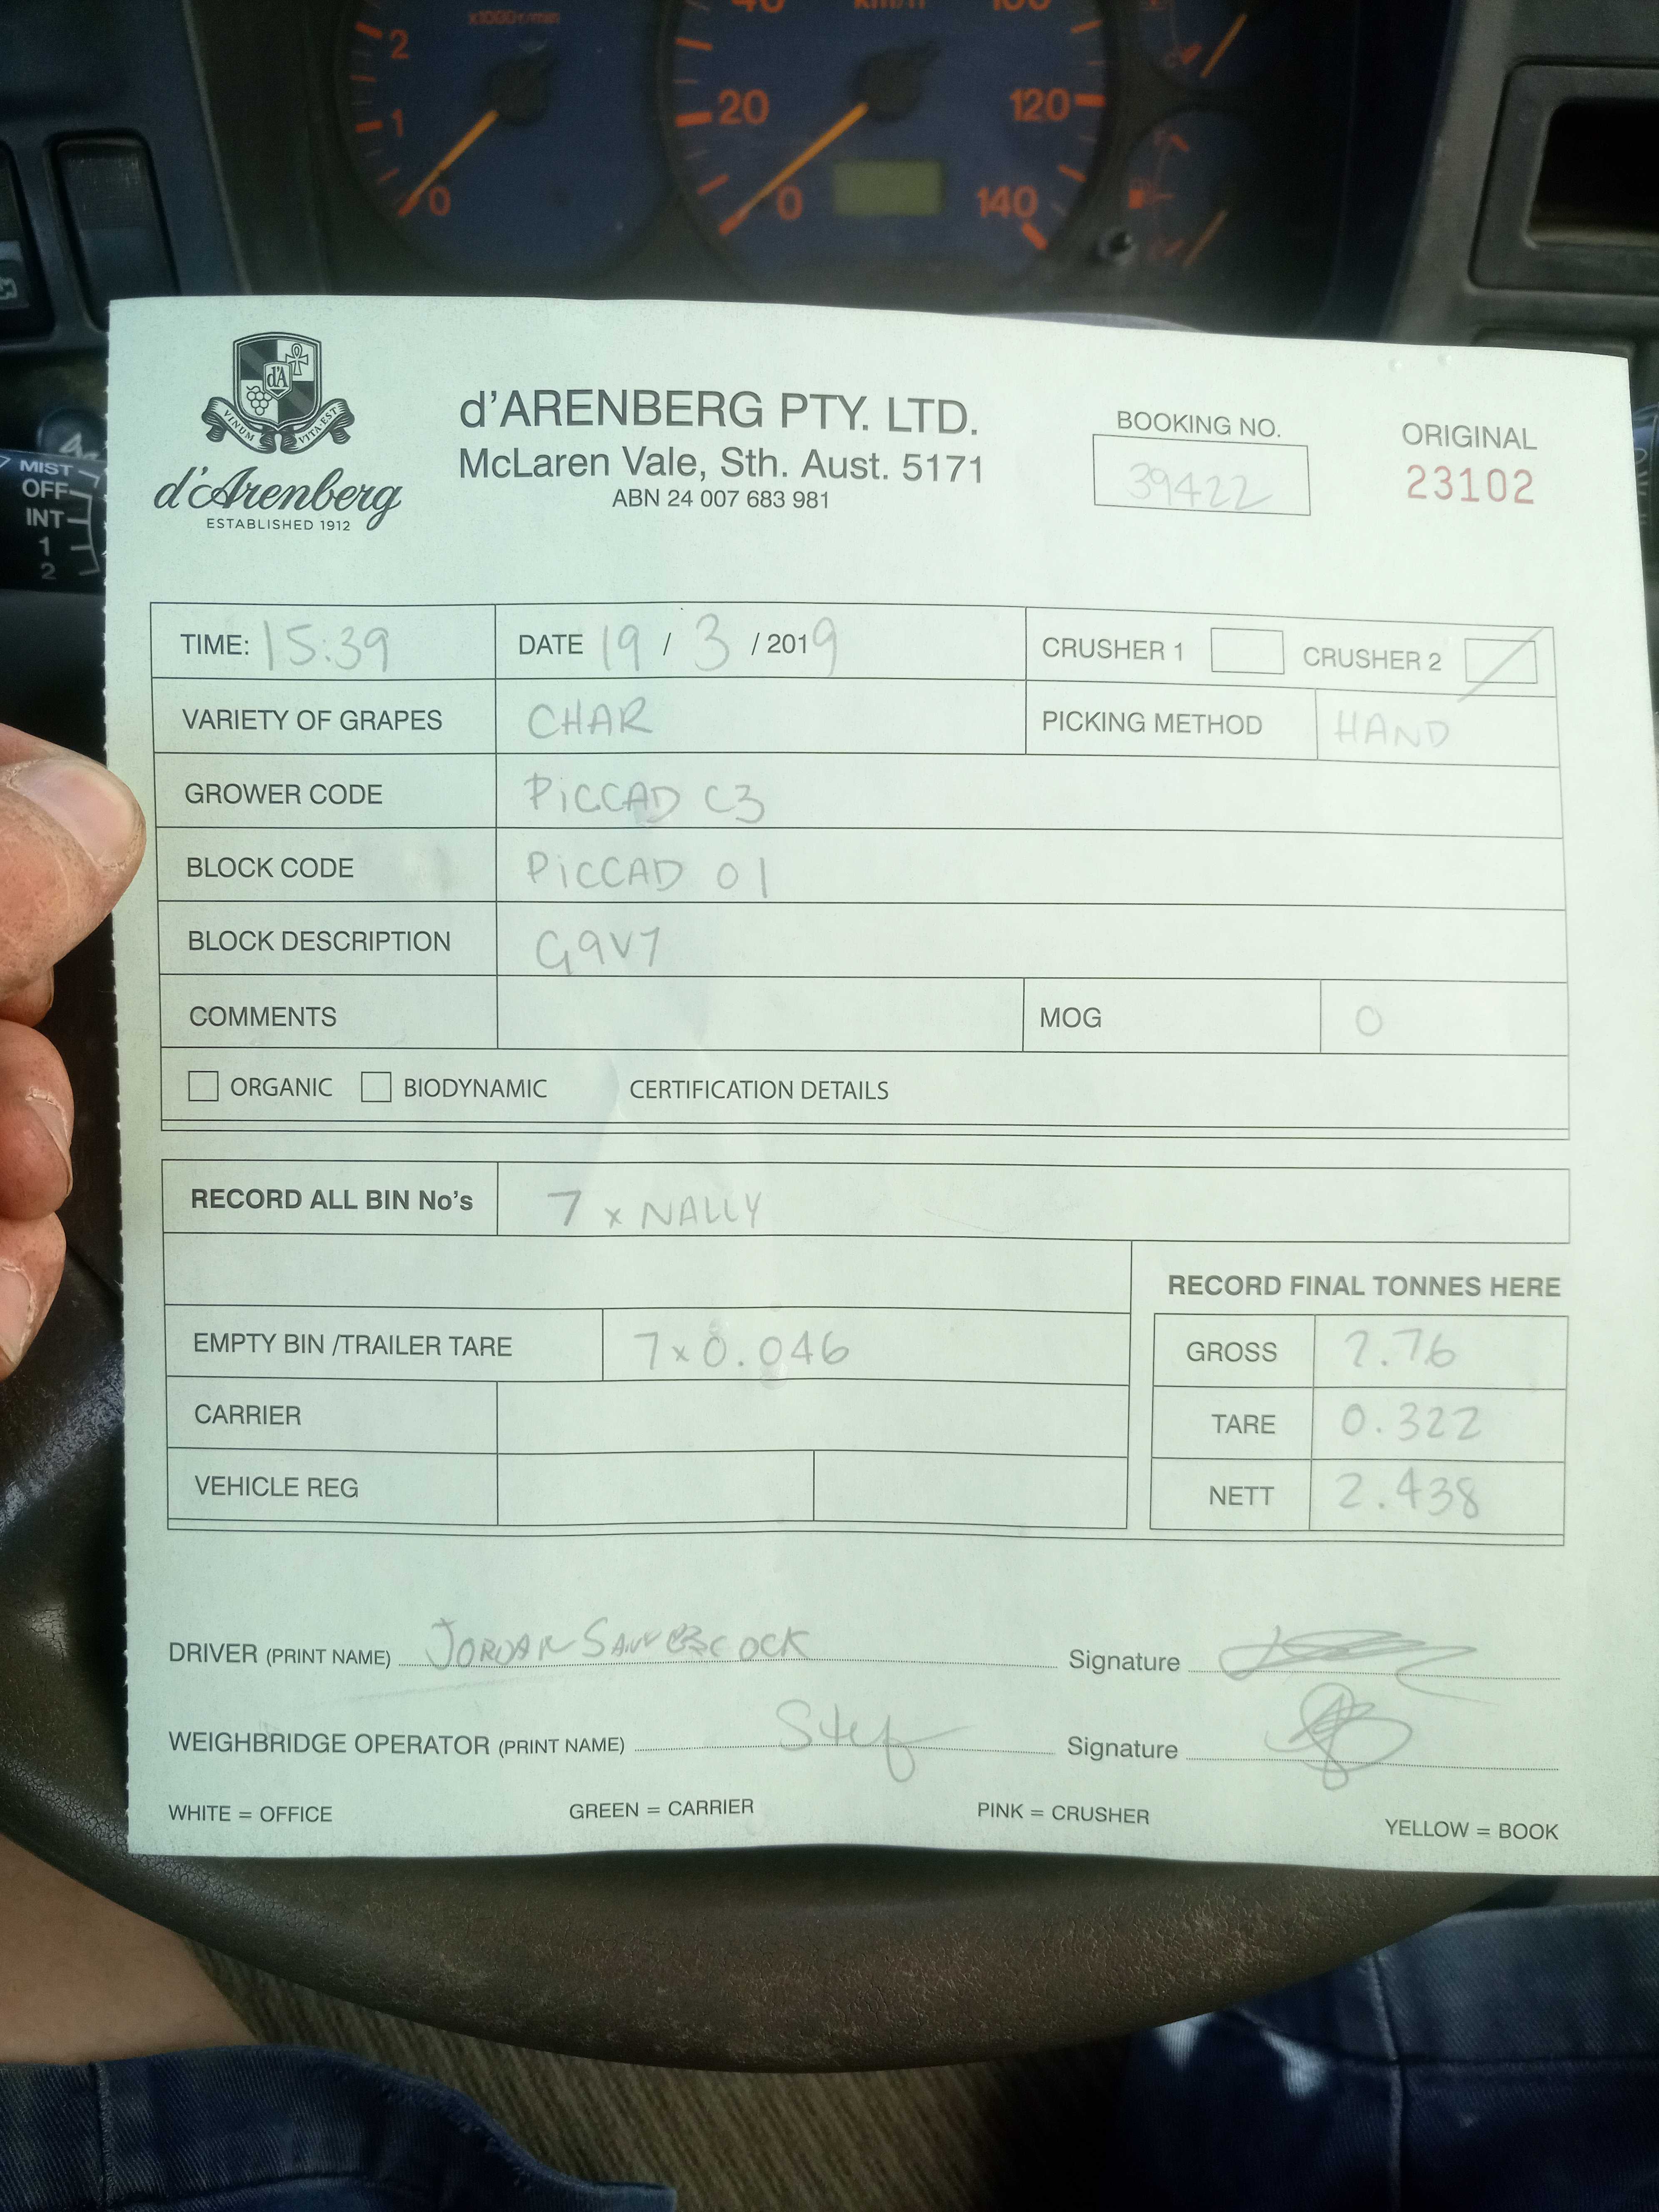 x1000r/min
2
1
0
40
km/h
100
20
120
0
140
MIST
OFF
INT
1
2
d'A
VINUM VITA EST
d'Arenberg
ESTABLISHED 1912
d'ARENBERG PTY. LTD.
McLaren Vale, Sth. Aust. 5171
ABN 24 007 683 981
BOOKING NO.
39422
ORIGINAL
23102
TIME: 15:39 DATE 19 / 3 / 2019 CRUSHER 1 CRUSHER 2
VARIETY OF GRAPES CHAR PICKING METHOD HAND
GROWER CODE PiCCAD C3
BLOCK CODE PiCCAD 01
BLOCK DESCRIPTION G9V7
COMMENTS MOG 0
ORGANIC BIODYNAMIC CERTIFICATION DETAILS
RECORD ALL BIN No's 7 x NALLY
RECORD FINAL TONNES HERE
EMPTY BIN /TRAILER TARE 7x0.046 GROSS 2.76
CARRIER TARE 0.322
VEHICLE REG NETT 2.438
DRIVER (PRINT NAME) JORDAN Signature
WEIGHBRIDGE OPERATOR (PRINT NAME) Stef Signature
WHITE = OFFICE GREEN = CARRIER PINK = CRUSHER YELLOW = BOOK